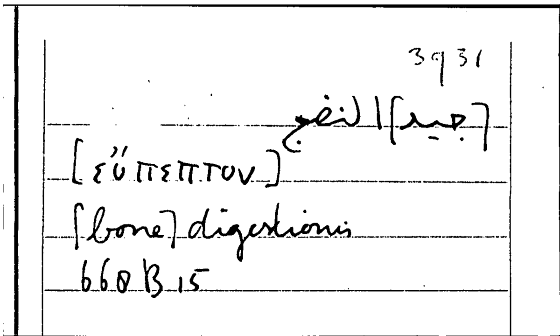 3931
[جيد] النضج
[εὔπεπτον]
[bone] digestionis
660 B 15